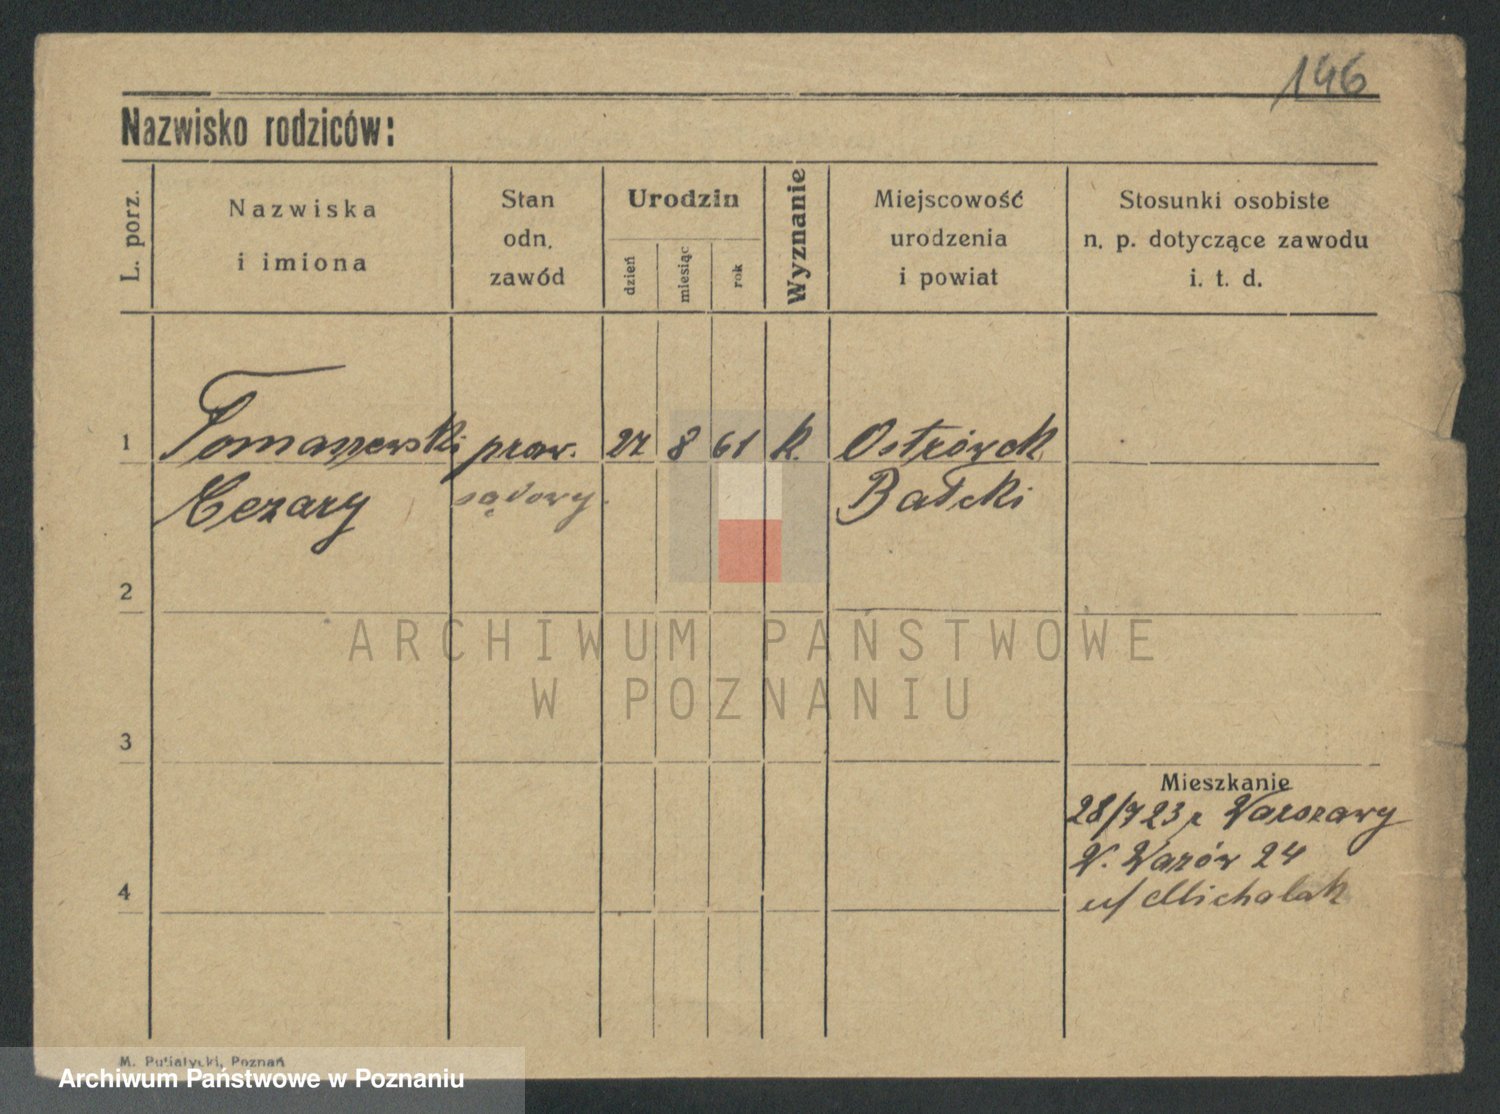 146
Nazwisko rodziców:
L. porz.
Nazwiska
i imiona
Stan
odn.
zawód
Urodzin
dzień
miesiąc
rok
Wyznanie
Miejscowość
urodzenia
i powiat
Stosunki osobiste
n. p. dotyczące zawodu
i. t. d.
1 Tomaszewski praw. 27 8 61 k. Ostrówek
Cezary sądowy.
2
ARCHIWUM PAŃSTWOWE
W POZNANIU
3
Mieszkanie
28/7 23 z Warszawy
W. Wazów 24
4
u/ Michalak
M. Putiatycki, Poznań
Archiwum Państwowe w Poznaniu